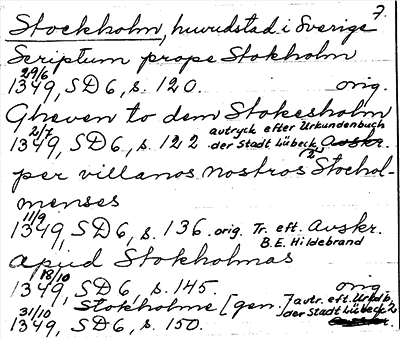 7.
Stockholm, huvudstad i Sverige
Scriptum prope Stokholm
29/6
1349, SD 6, s. 120. orig.
Gheven to dem Stokesholm
2/7 avtryck efter Urkundenbuch
1349, SD 6, s. 122 der Stadt Lübeck Avskr.
2
per villanos nostros Stochol-
menses
11/9
1349, SD 6, s. 136. orig. Tr. eft. Avskr.
B.E. Hildebrand
apud Stokholmas
18/10
1349, SD 6, s. 145. orig.
Stokholme [gen.] avtr. eft. Urkdb.
31/10 der Stadt Lübeck 2
1349, SD 6, s. 150.